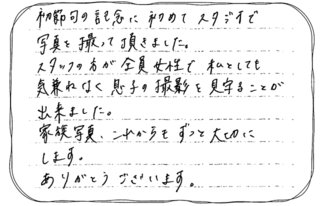 初節句の記念に初めてスタジオで
写真を撮って頂きました。
スタッフの方が全員女性で私としても
気兼ねなく息子の撮影を見守ることが
出来ました。
家族写真、これからもずっと大切に
します。
ありがとうございます。